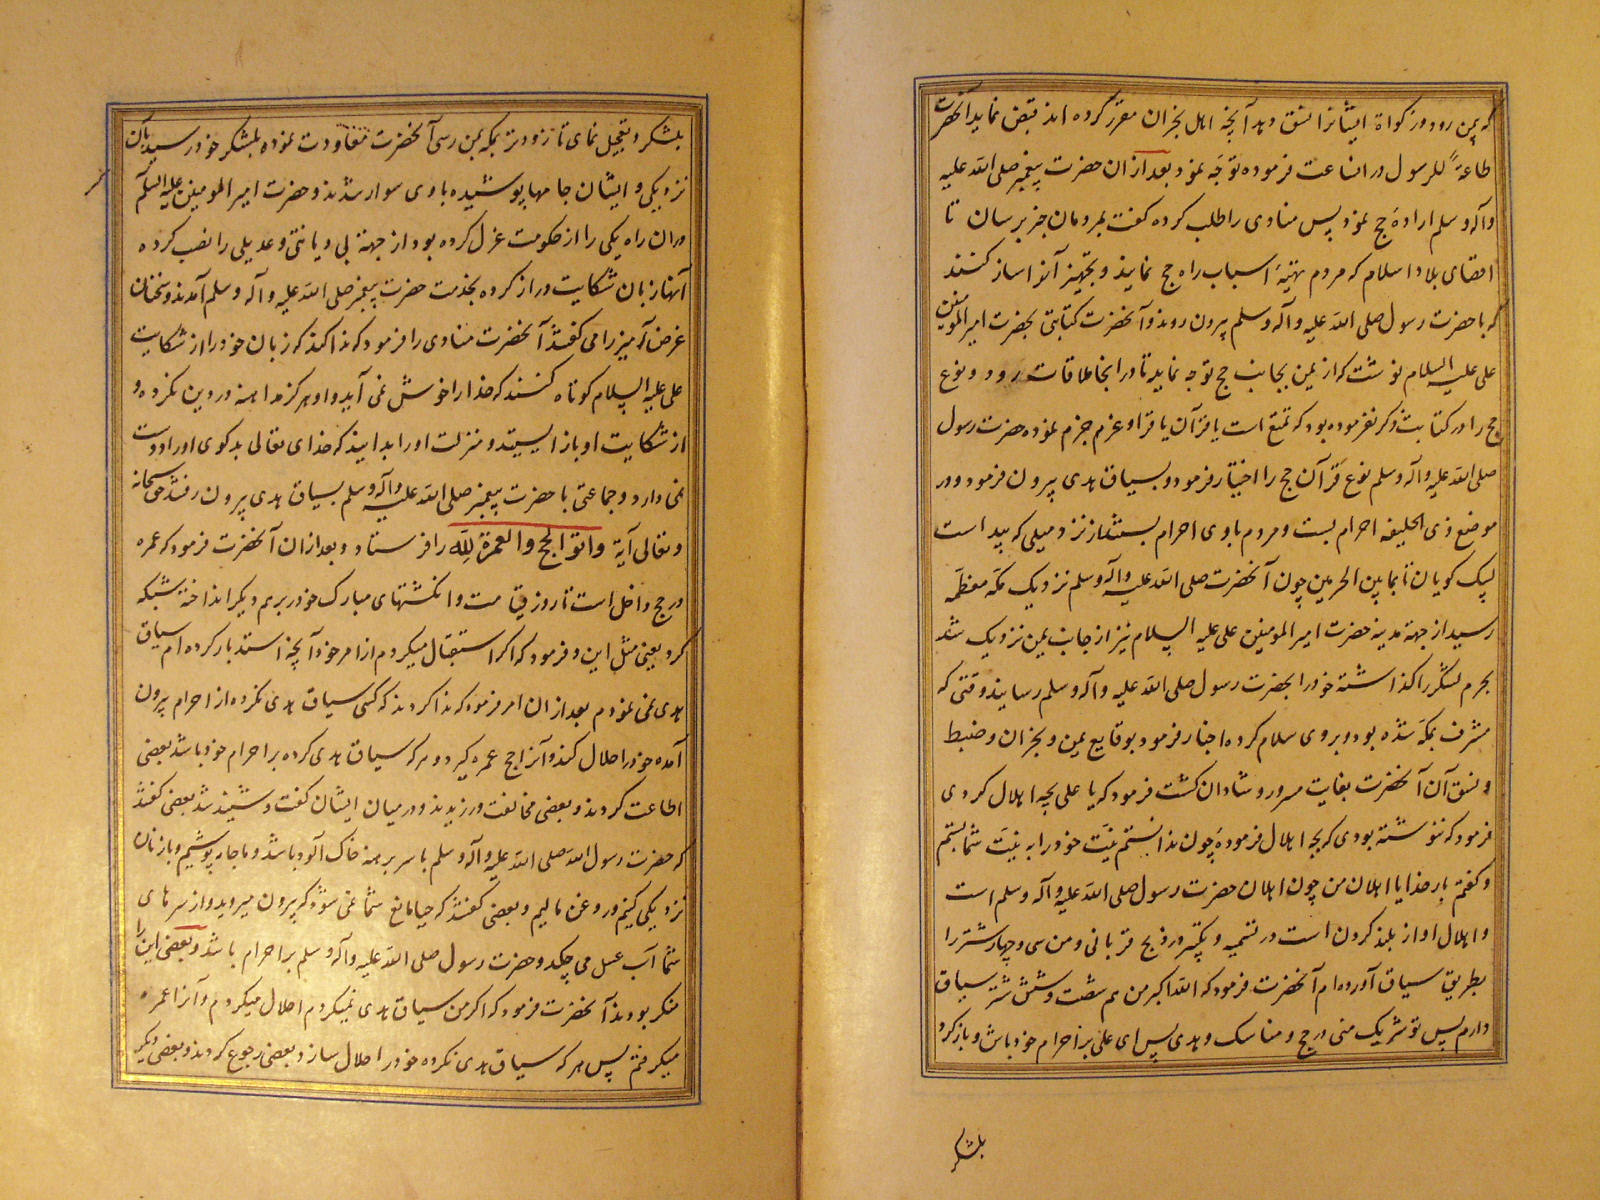 که بیمن رود و زکواة ایشانرا نسق دهد آنچه اهل نجران مقرر کرده اند قبض نماید آنحضرت
طاعةً للرسول در انساعت فرموده توجه نمود بعد ازان حضرت پیغمبر صلی الله علیه
وآله وسلم ارادهٔ حج نمود پس منادی را طلب کرده گفت بمردمان خبر برسان تا
اقصای بلاد اسلام که مردم تهیهٔ اسباب راه حج نمایند و تجهیز آنرا ساز کنند
که با حضرت رسول صلی الله علیه وآله وسلم بیرون روند و آنحضرت کتابتی بحضرت امیرالمومنین
علی علیه السلام نوشت که از یمن بجانب حج توجه نماید تا در انجا ملاقات رود و نوع
حج را در کتابت ذکر نفرموده بود که تمتع است یا قرآن یا فرادا و عزم جزم نموده حضرت رسول
صلی الله علیه وآله وسلم نوع قرآن حج را اختیار فرمود و بسیاق هدی بیرون فرمود و در
موضع ذی الحلیفه احرام بست و مردم باوی احرام بستند از نزد میلی که بیداست
لبیک گویان تا بمابین الحرمین چون آنحضرت صلی الله علیه وآله وسلم نزدیک مکه معظمه
رسید از جهة مدینه حضرت امیرالمومنین علی علیه السلام نیز از جانب یمن نزدیک شد
بحرم لشکر را گذاشته خود را بحضرت رسول صلی الله علیه وآله وسلم رسانید وقتی که
مشرف بمکه شده بود و بروی سلام کرده اخبار فرمود بوقایع یمن و نجران و ضبط
و نسق آن آنحضرت بغایت مسرور و شادان گشت فرمود که یا علی بچه اهلال کردی
فرمود که ننوشته بودی که بچه اهلال فرموده چون ندانستم نیت خود را به نیت شما بستم
و گفتم بار خدایا اهلان من چون اهلان حضرت رسول صلی الله علیه وآله وسلم است
و اهلال اواز بلند کردن است در تسمیه و تکبیر در ذبح قربانی و من سی و چهار شتر را
بطریق سیاق آورده ام آنحضرت فرمود که الله اکبر من هم شصت و شش شتر سیاق
دارم پس تو شریک منی در حج و مناسک و هدی پس ای علی بر احرام خود باش و بازگرد
بلشکر
بلشکر و تعجیل نمای تا زودتر بمکه بمن رسی آنحضرت معاودت نموده بلشکر خود رسید بآن
نزدیکی و ایشان جامها پوشیده باوی سوار شدند و حضرت امیرالمومنین علیه السلم
دران راه یکی را از حکومت عزل کرده بود از جهة بی دیانتی و عدیلی را نصب کرده
آنها زبان شکایت دراز کرده بخدمت حضرت پیغمبر صلی الله علیه وآله وسلم آمدند و سخنان
غرض آمیز را می گفتند آنحضرت منادی را فرمود که ندا کند که زبان خود را از شکایت
علی علیه السلام کوتاه کنند که خدا را خوش نمی آید و او هرگز مداهنه در دین نکرده و
از شکایت او باز ایستید و منزلت او را بدانید که خدای تعالی بدگوی او را دوست
نمی دارد و جماعتی با حضرت پیغمبر صلی الله علیه وآله وسلم بسیاق هدی بیرون رفتند حق سبحانه
و تعالی آیة واتموا الحج والعمرة لله را فرستاد و بعد ازان آنحضرت فرمود که عمره
در حج داخل است تا روز قیامت و انگشتهای مبارک خود بر هم دیگر انداخته شبکه
کرد یعنی مثل این و فرمود که اگر استقبال میکردم از امر خود آنچه استدبار کرده ام سیاق
هدی نمی نمودم بعد ازان امر فرمود که ندا کردند که کسی سیاق هدی نکرده از احرام بیرون
آمده خود را حلال کند و آنرا حج عمره گیرد و هر که سیاق هدی کرده بر احرام خود باشد بعضی
اطاعت کردند و بعضی مخالفت ورزیدند و در میان ایشان گفت و شنید شد بعضی گفتند
که حضرت رسول الله صلی الله علیه وآله وسلم با سر برهنه خاک آلود باشد و ما جامه پوشیم و با زنان
نزدیکی کنیم و روغن مالیم و بعضی گفتند که حیا مانع شما نمی شود که بیرون میروید و از سرهای
شما آب غسل می چکد و حضرت رسول صلی الله علیه وآله وسلم بر احرام باشد و بعضی این را
منکر بودند آنحضرت فرمود که اگر من سیاق هدی نمیکردم احلال میکردم و آنرا عمره
میگرفتم پس هر که سیاق هدی نکرده خود را حلال سازد بعضی رجوع کردند و بعضی دیگر